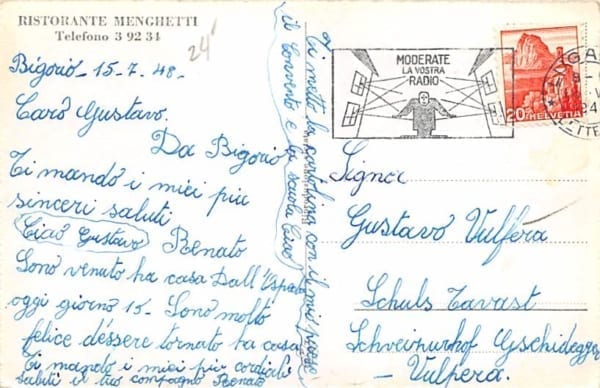 RISTORANTE MENGHETTI
Telefono 3 92 34
24'
Bigorió - 15-7-48-
Caró Gustavo.
Da Bigorió
Ti mandó i miei più
sinceri saluti
Ciaó Gustavo Renato
Sono venuto ha casa Dall'
oggi giorno 15- Sono molto
felice d'éssere tornato ha casa
Ti mandó i miei più cordiali
saluti il tuo compagno Renato
Ti metto la cartolina con il mio paese
il Convento e la scuola Ciaó
MODERATE
LA VOSTRA
RADIO
20 HELVETIA
Signor
Gustavó Vulféra
Schuls Tarast
Schveizurhof Gschidegger
- Vulpera -